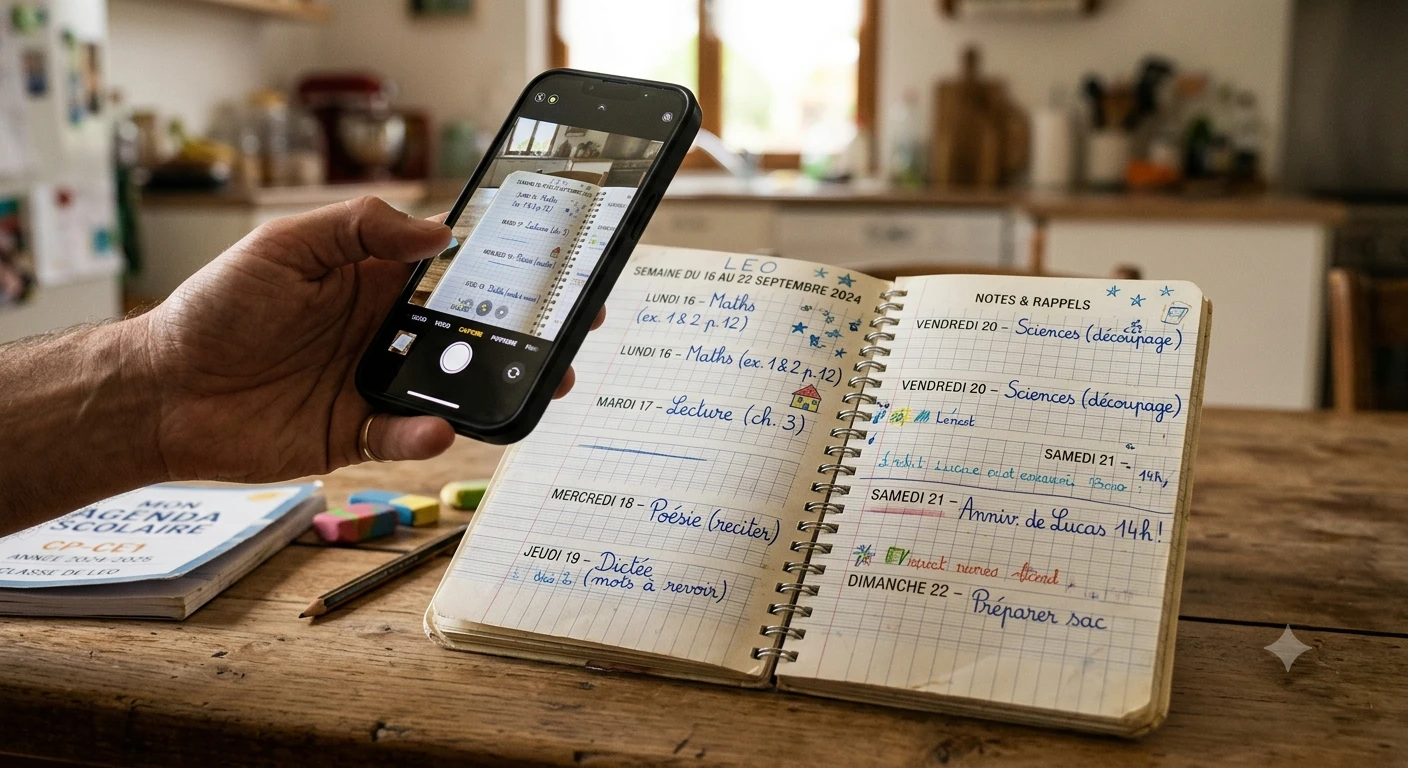 LEO
SEMAINE DU 16 AU 22 SEPTEMBRE 2024
LUNDI 16 – Maths
(ex. 1 & 2 p. 12)
LUNDI 16 – Maths (ex. 1 & 2 p. 12)
MARDI 17 – Lecture (ch. 3)
MERCREDI 18 – Poésie (reciter)
JEUDI 19 – Dictée
(mots à revoir)
NOTES & RAPPELS
VENDREDI 20 – Sciences (découpage)
VENDREDI 20 – Sciences (découpage)
SAMEDI 21 – 14h,
SAMEDI 21 – Anniv. de Lucas 14h!
DIMANCHE 22 – Préparer sac
MON
AGENDA
SCOLAIRE
CP-CE1
ANNÉE 2024-2025
CLASSE DE LEO